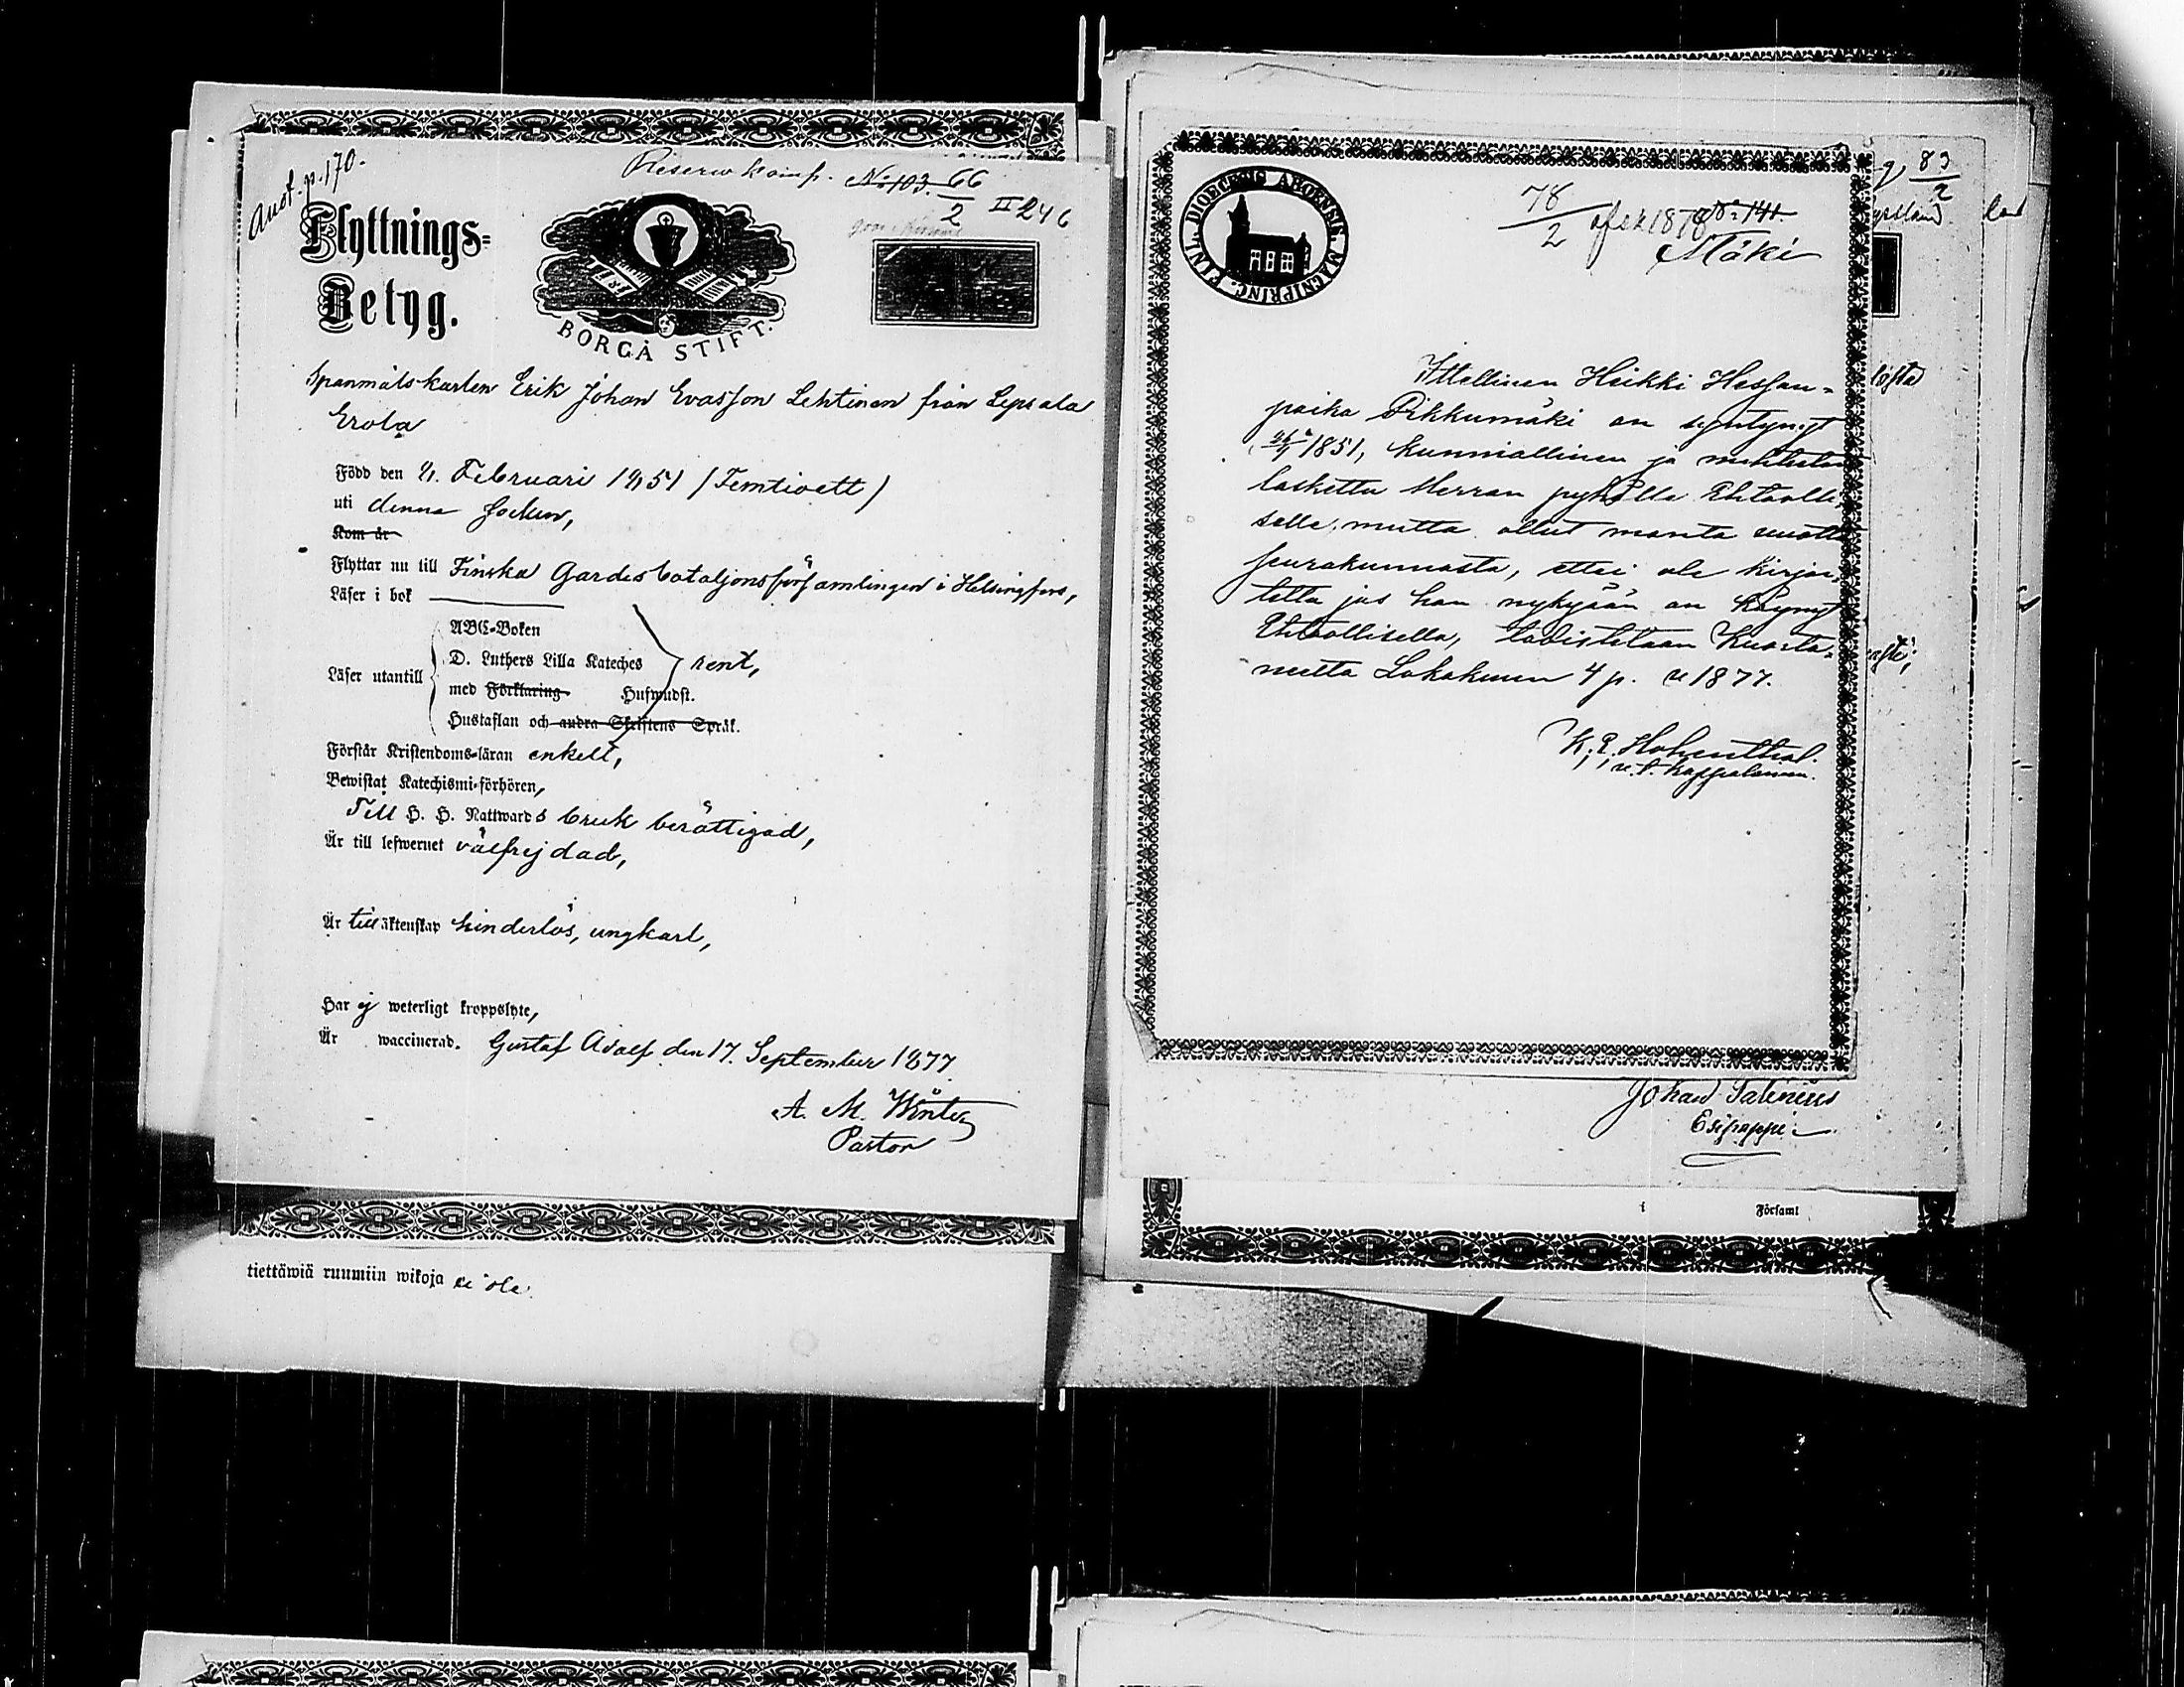 Anot. p. 170.
Reserv komp. No 103. 66/2 II 246
Flyttnings-
Betyg.
BORGÅ STIFT.
Spanmålskarlen Erik Johan Evasson Lehtinen från Lepsala
Erola
Född den 21. Februari 1851 (Femtioett)
uti denna socken,
Kom år
Flyttar nu till Finska Gardesbataljonsförsamlingen i Helsingfors,
Läser i bok
ABC-Boken
D. Luthers Lilla Kateches
rent,
Läser utantill
med Förklaring. Husandst.
Hustaflan och andra Skriftens Språk.
Förstår Kristendoms-läran enkelt,
Bewistat Katechismi-förhören,
Till H. H. Nattwards bruk berättigad,
Är till lefwernet välfrejdad,
Är till äktenskap hinderlös, ungkarl,
Har ej weterligt kroppslyte,
Är waccinerad. Gustaf Adolf den 17. September 1877
A. M. Winter
Pastor
tiettäwiä ruumiin wikoja ei ole.
DIOECESIS ABOENSIS. MAGNIPRINC. FINL.
78/2 afsk 1878 No 141
Mäki
Ittellinen Heikki Hessan-
poika Pikkumäki on syntynyt
1851, kunniallinen ja
laskettu Herran pyhälle Ehtoolli-
selle, mutta ollut monta vuotta
seurakunnasta, ettei ole kirjoi-
tettu jos han nykyään on käynyt
Ehtoollisella, todistetaan Kuorta-
neelta Lokakuun 4 p. v 1877.
K. R. Hohenthal.
v. t. kappalainen.
83/2
Johan Salenius
Esipappi
Församl